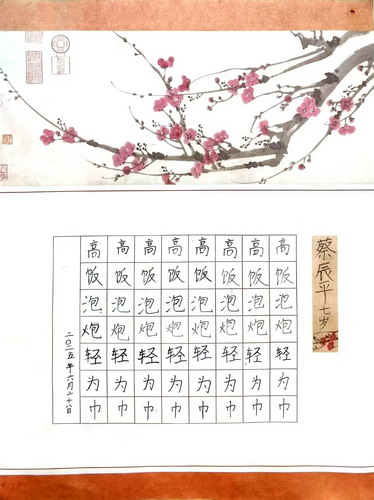 高 高 高 高 高 高 高 高
饭 饭 饭 饭 饭 饭 饭 饭
泡 泡 泡 泡 泡 泡 泡 泡
炮 炮 炮 炮 炮 炮 炮 炮
轻 轻 轻 轻 轻 轻 轻 轻
为 为 为 为 为 为 为 为
巾 巾 巾 巾 巾 巾 巾 巾
蔡辰平七岁
二〇二五年六月二十八日